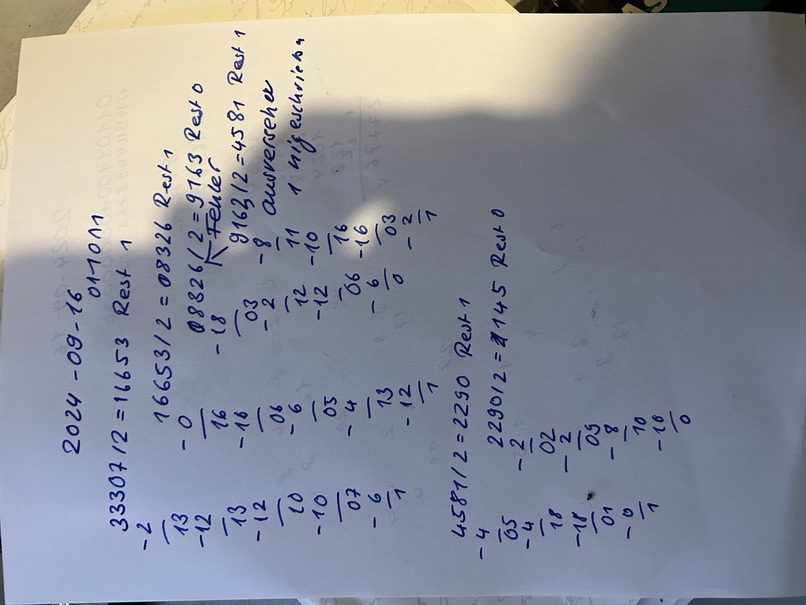 2024-09-16
011011
33307/2=16653 Rest 1
-2
13
-12
13
-12
10
-10
07
-6
1
16653/2=08326 Rest 1
-0
16
-16
06
-6
05
-4
13
-12
1
08326/2=9163 Rest 0
Fehler
-18
03
-2
12
-12
06
-6
0
9163/2=4581 Rest 1
-8
11
-10
16
-16
03
-2
1
ausversehen
1 geschrieben
4581/2=2290 Rest 1
-4
05
-4
18
-18
01
-0
1
2290/2=1145 Rest 0
-2
02
-2
09
-8
10
-10
0